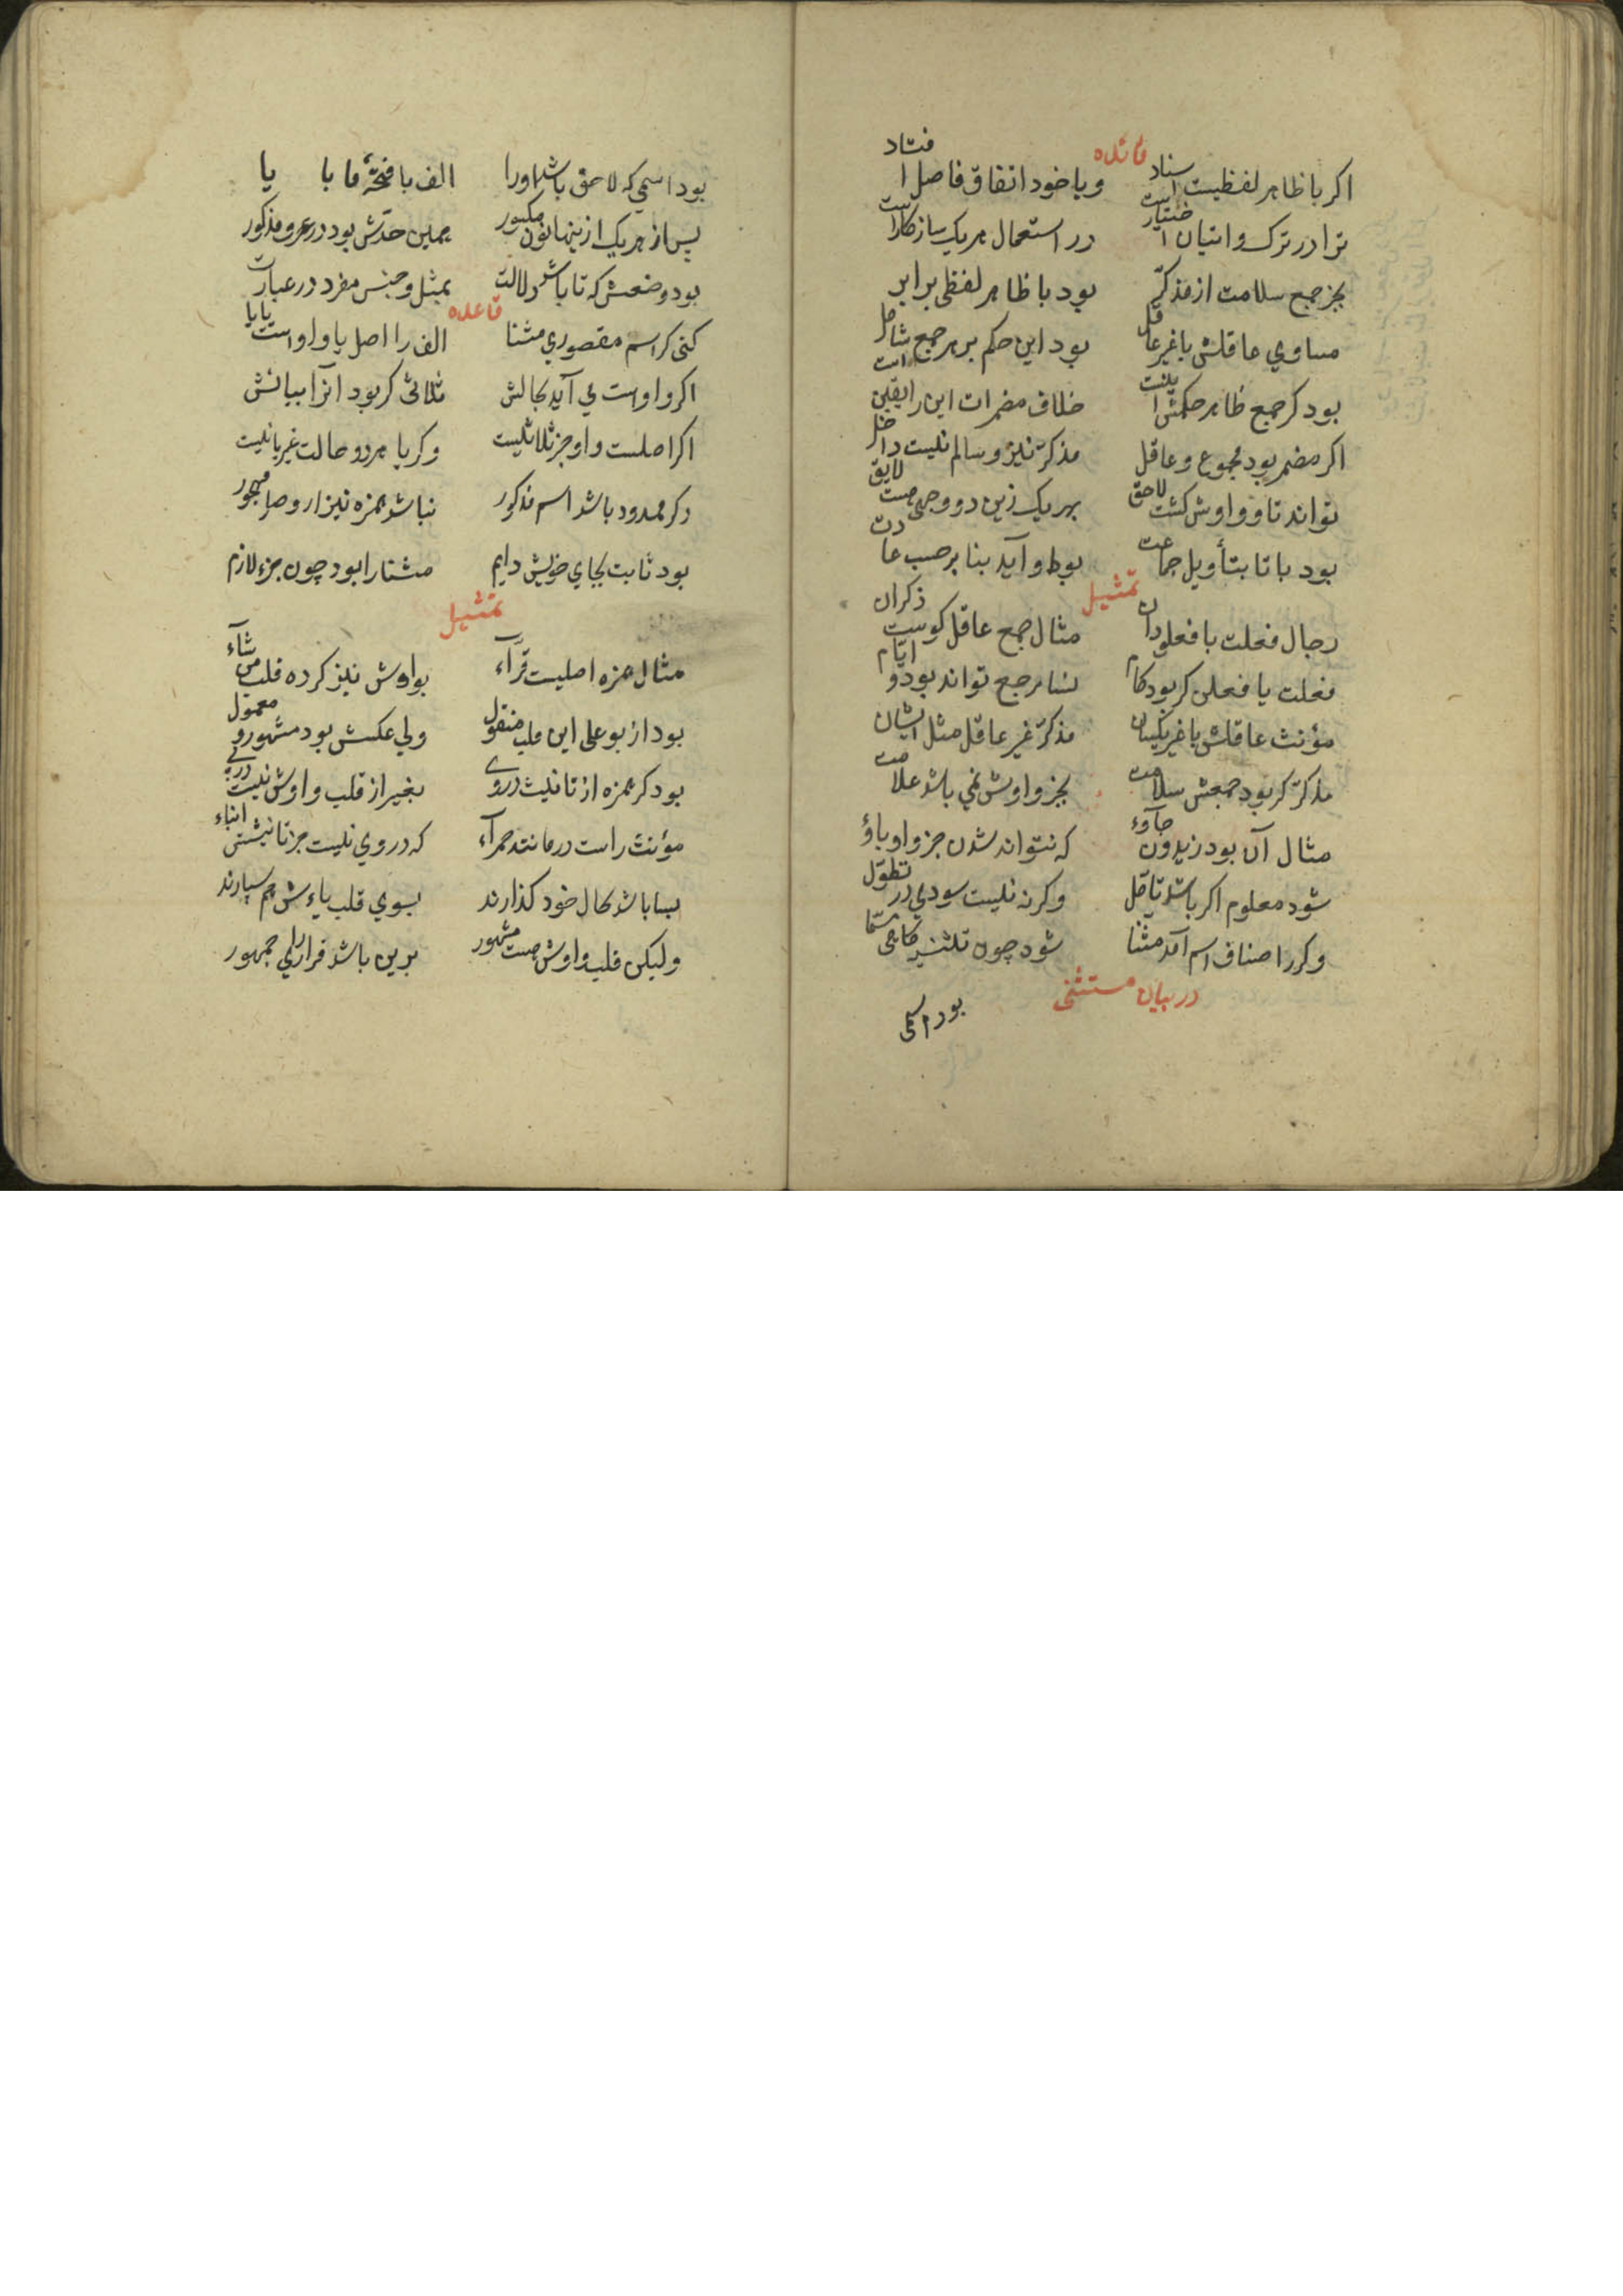 فائده
اکر با ظاهر لفظیست اسناد ویا خود اتفاق فاصل افتاد
ترا در ترک واتیان اختیار است در استعمال هریک سازکار است
بجز جمع سلامت از مذکّر بود با ظاهر لفظی برابر
مساوی عاقلش با غیر عاقل بود این حکم بر هر جمع شامل
بود کر جمع ظاهر حکمش اینست خلاف مضمرات این را یقین است
اکر مضمر بود مجموع وعاقل مذکّر نیز وسالم نیست داخل
تواند تا و واوش کشت لاحق بهریک زین دو وجهی هست لایق
بود با تا بتأویل جماعت بواو آید بنا بر حسب عادت
تمثیل
رجال فعلت با فعلو دان مثال جمع عاقل کوست ذکران
فعلت یا فعلن کر بود کام نسا مرجع تواند بود و ایّام
مؤنث عاقلش با غیر یکسان مذکّر غیر عاقل مثل ایشان
مذکّر کر بود جمعش سلامت بجز واوش نمی باشد علامت
مثال آن بود زیدون جآوء که نتواند شدن جز واو باؤ
شود معلوم اکر باشد تأمّل وکرنه نیست سودی در تطوّل
وکر ز اصناف اسم آمد مثنا شود چون تلثنیه کاهی مسمّا
در بیان مستثنی
بود اسمی
بود اسمی که لاحق باشد اورا الف با فتحهٔ ما با یا
پس از هریک ازینها نون مکسور همین حدّش بود در عرف مذکور
بود وضعش که تا باشد دلالت بمثل وجنس مفرد در عبارت
قاعده
کنی کر اسم مقصوری مثنا الف را اصل یا واو است یا یا
اکر واوست می آید بحالش ثلاثی کر بود آنرا بیانش
اکر اصلست واو جز ثلاثیست وکر یا هر دو حالت غیر یا نیست
وکر ممدود باشد اسم مذکور نباشد همزه نیز از وصل مهجور
بود ثابت بجای خویش دایم مثنا را بود چون جزء لازم
تمثیل
مثال همزه اصلیست قرآء بواوش نیز کرده قلب من شآء
بود از بو علی این قلب منقول ولی عکسش بود مشهور و معمول
بود کر همزه از تانیث در وی بغیر از قلب واوش نیست در پی
مؤنث راست در مانند حمرآء که در وی نیست جز تانیثش انباء
بسا باشد بحال خود کذارند بسوی قلب یاءش هم سپارند
ولیکن قلب واوش هست مشهور برین باشد قرار رای جمهور